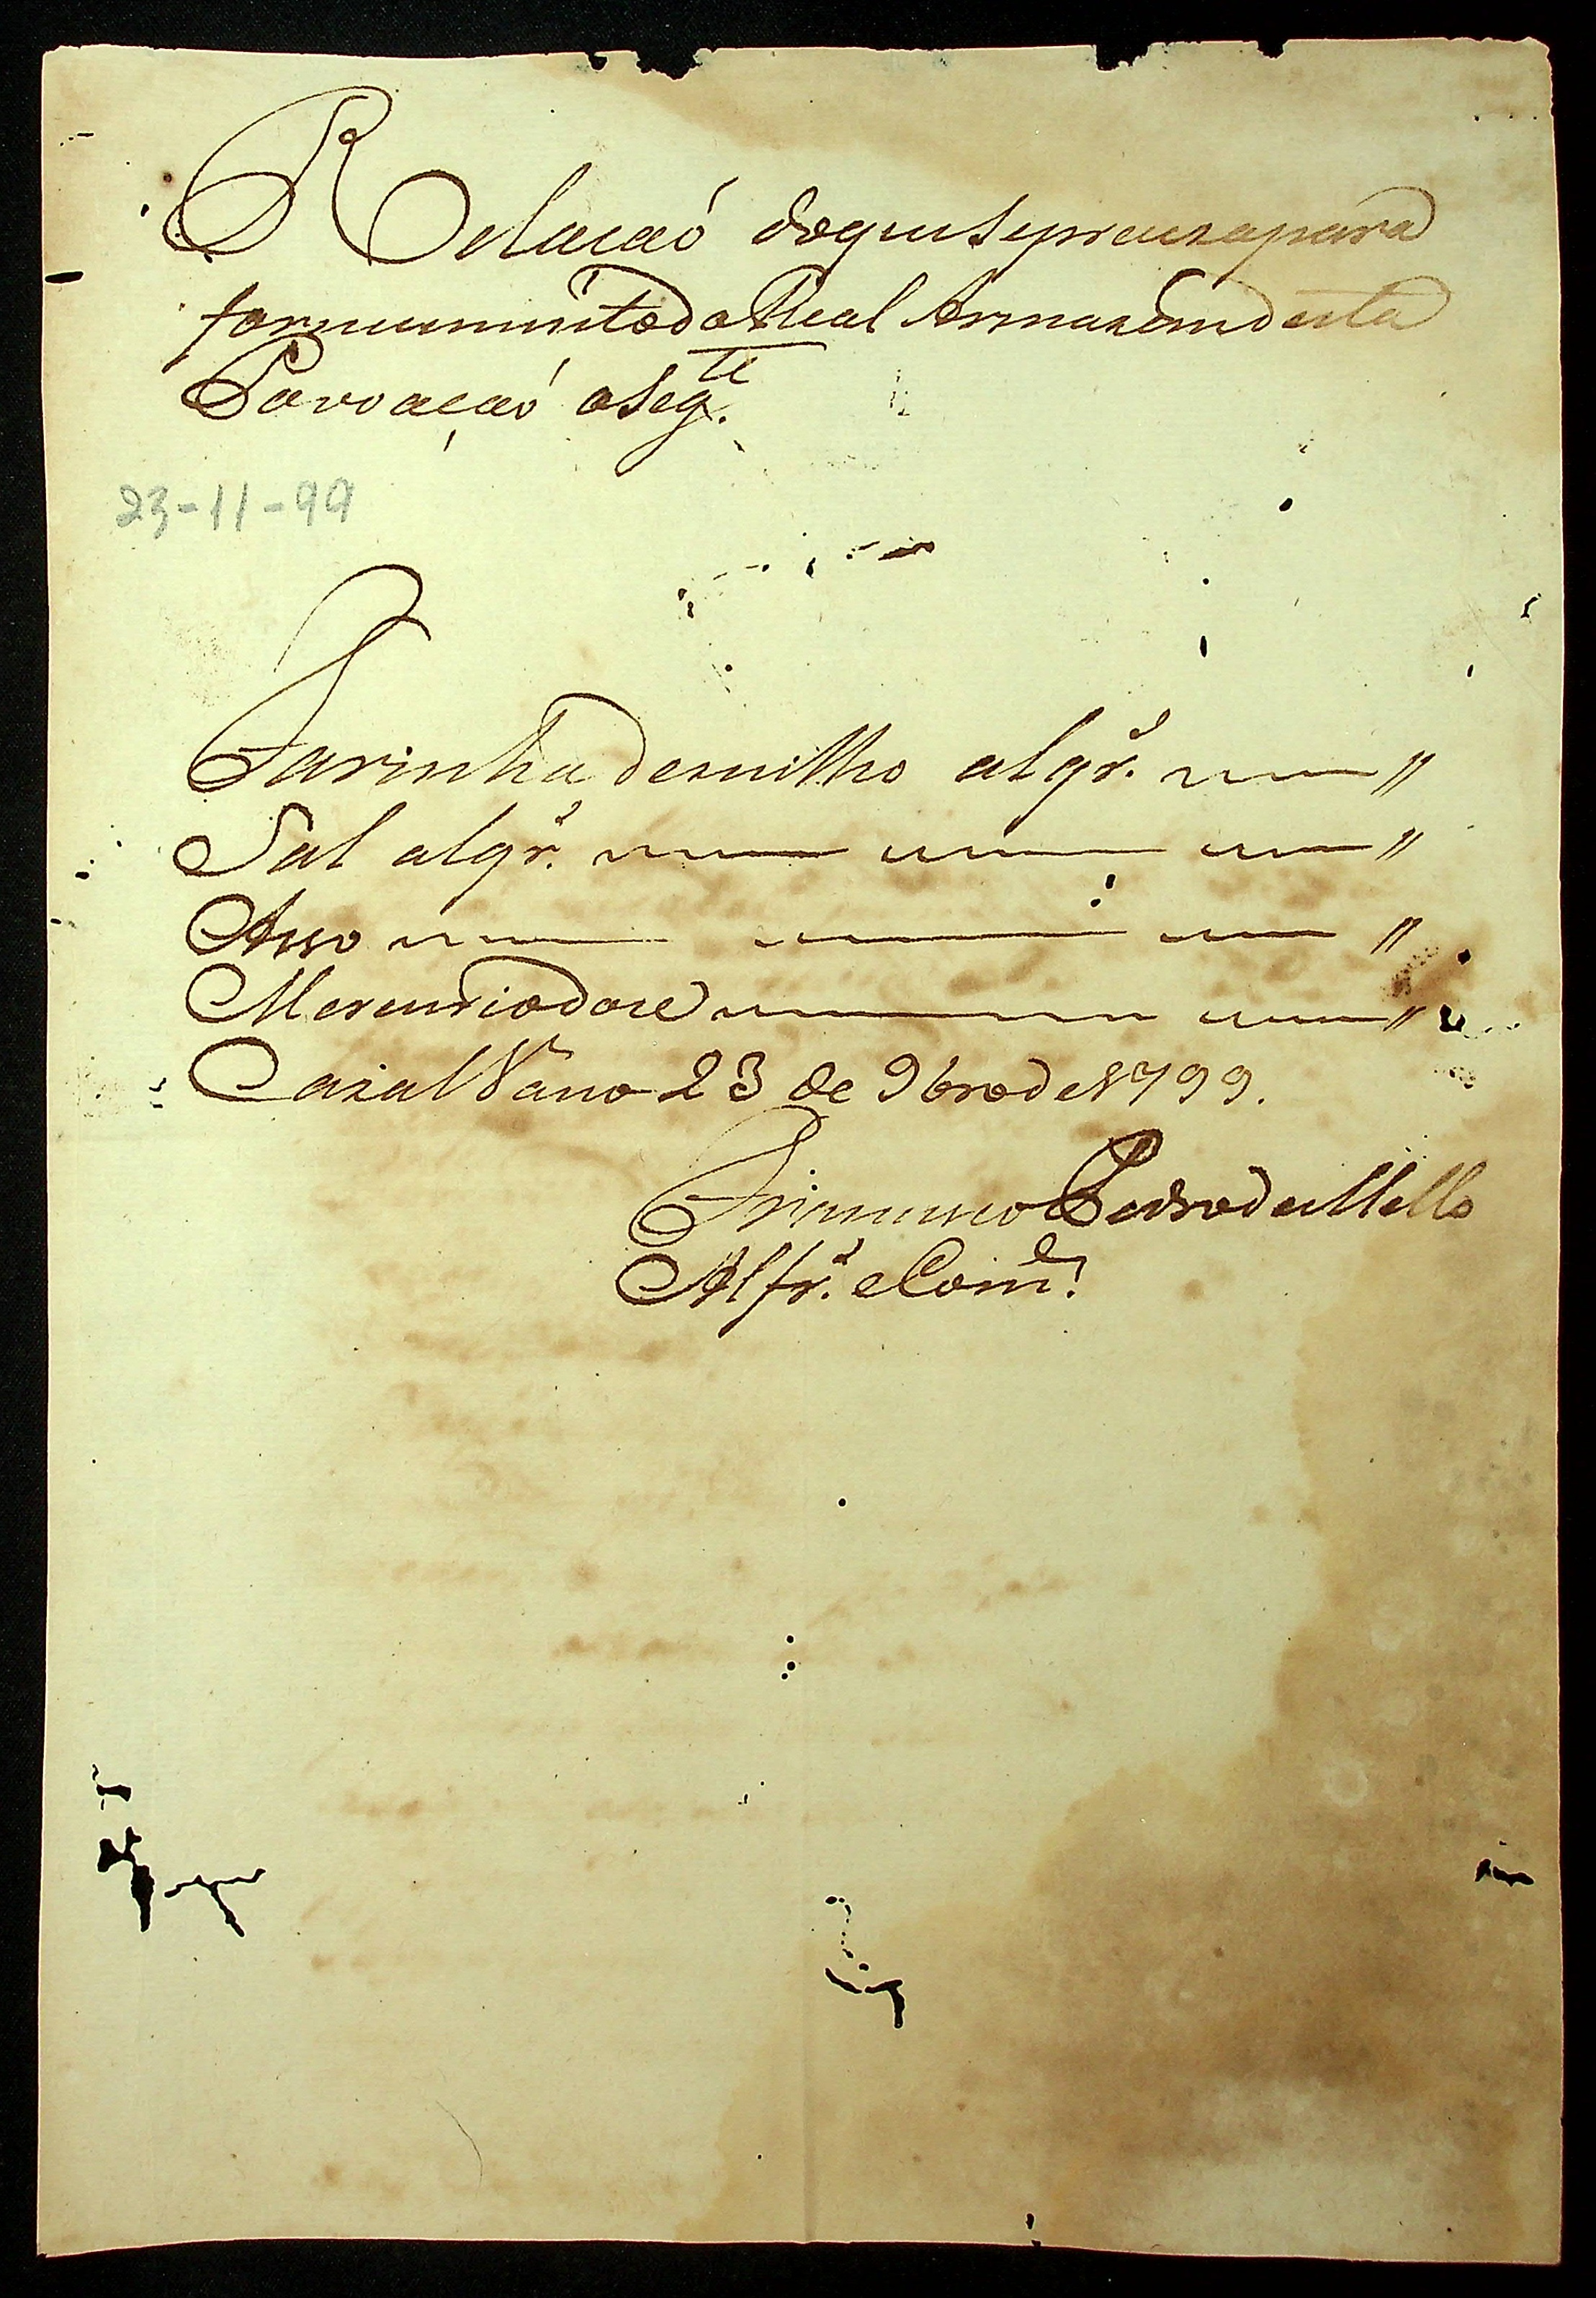 Relacaó doque seprecizapara
fornecimentodo Real Armazemdesta
Povoaçaó oseg.te
23-11-99
Farinha demilho alqr.s
Sal alqr.s
Asso
Mercuriodoce
CazalVasco 23 de 9brode1799.
Francisco PedrodeMello
Alfr.s eCom.e